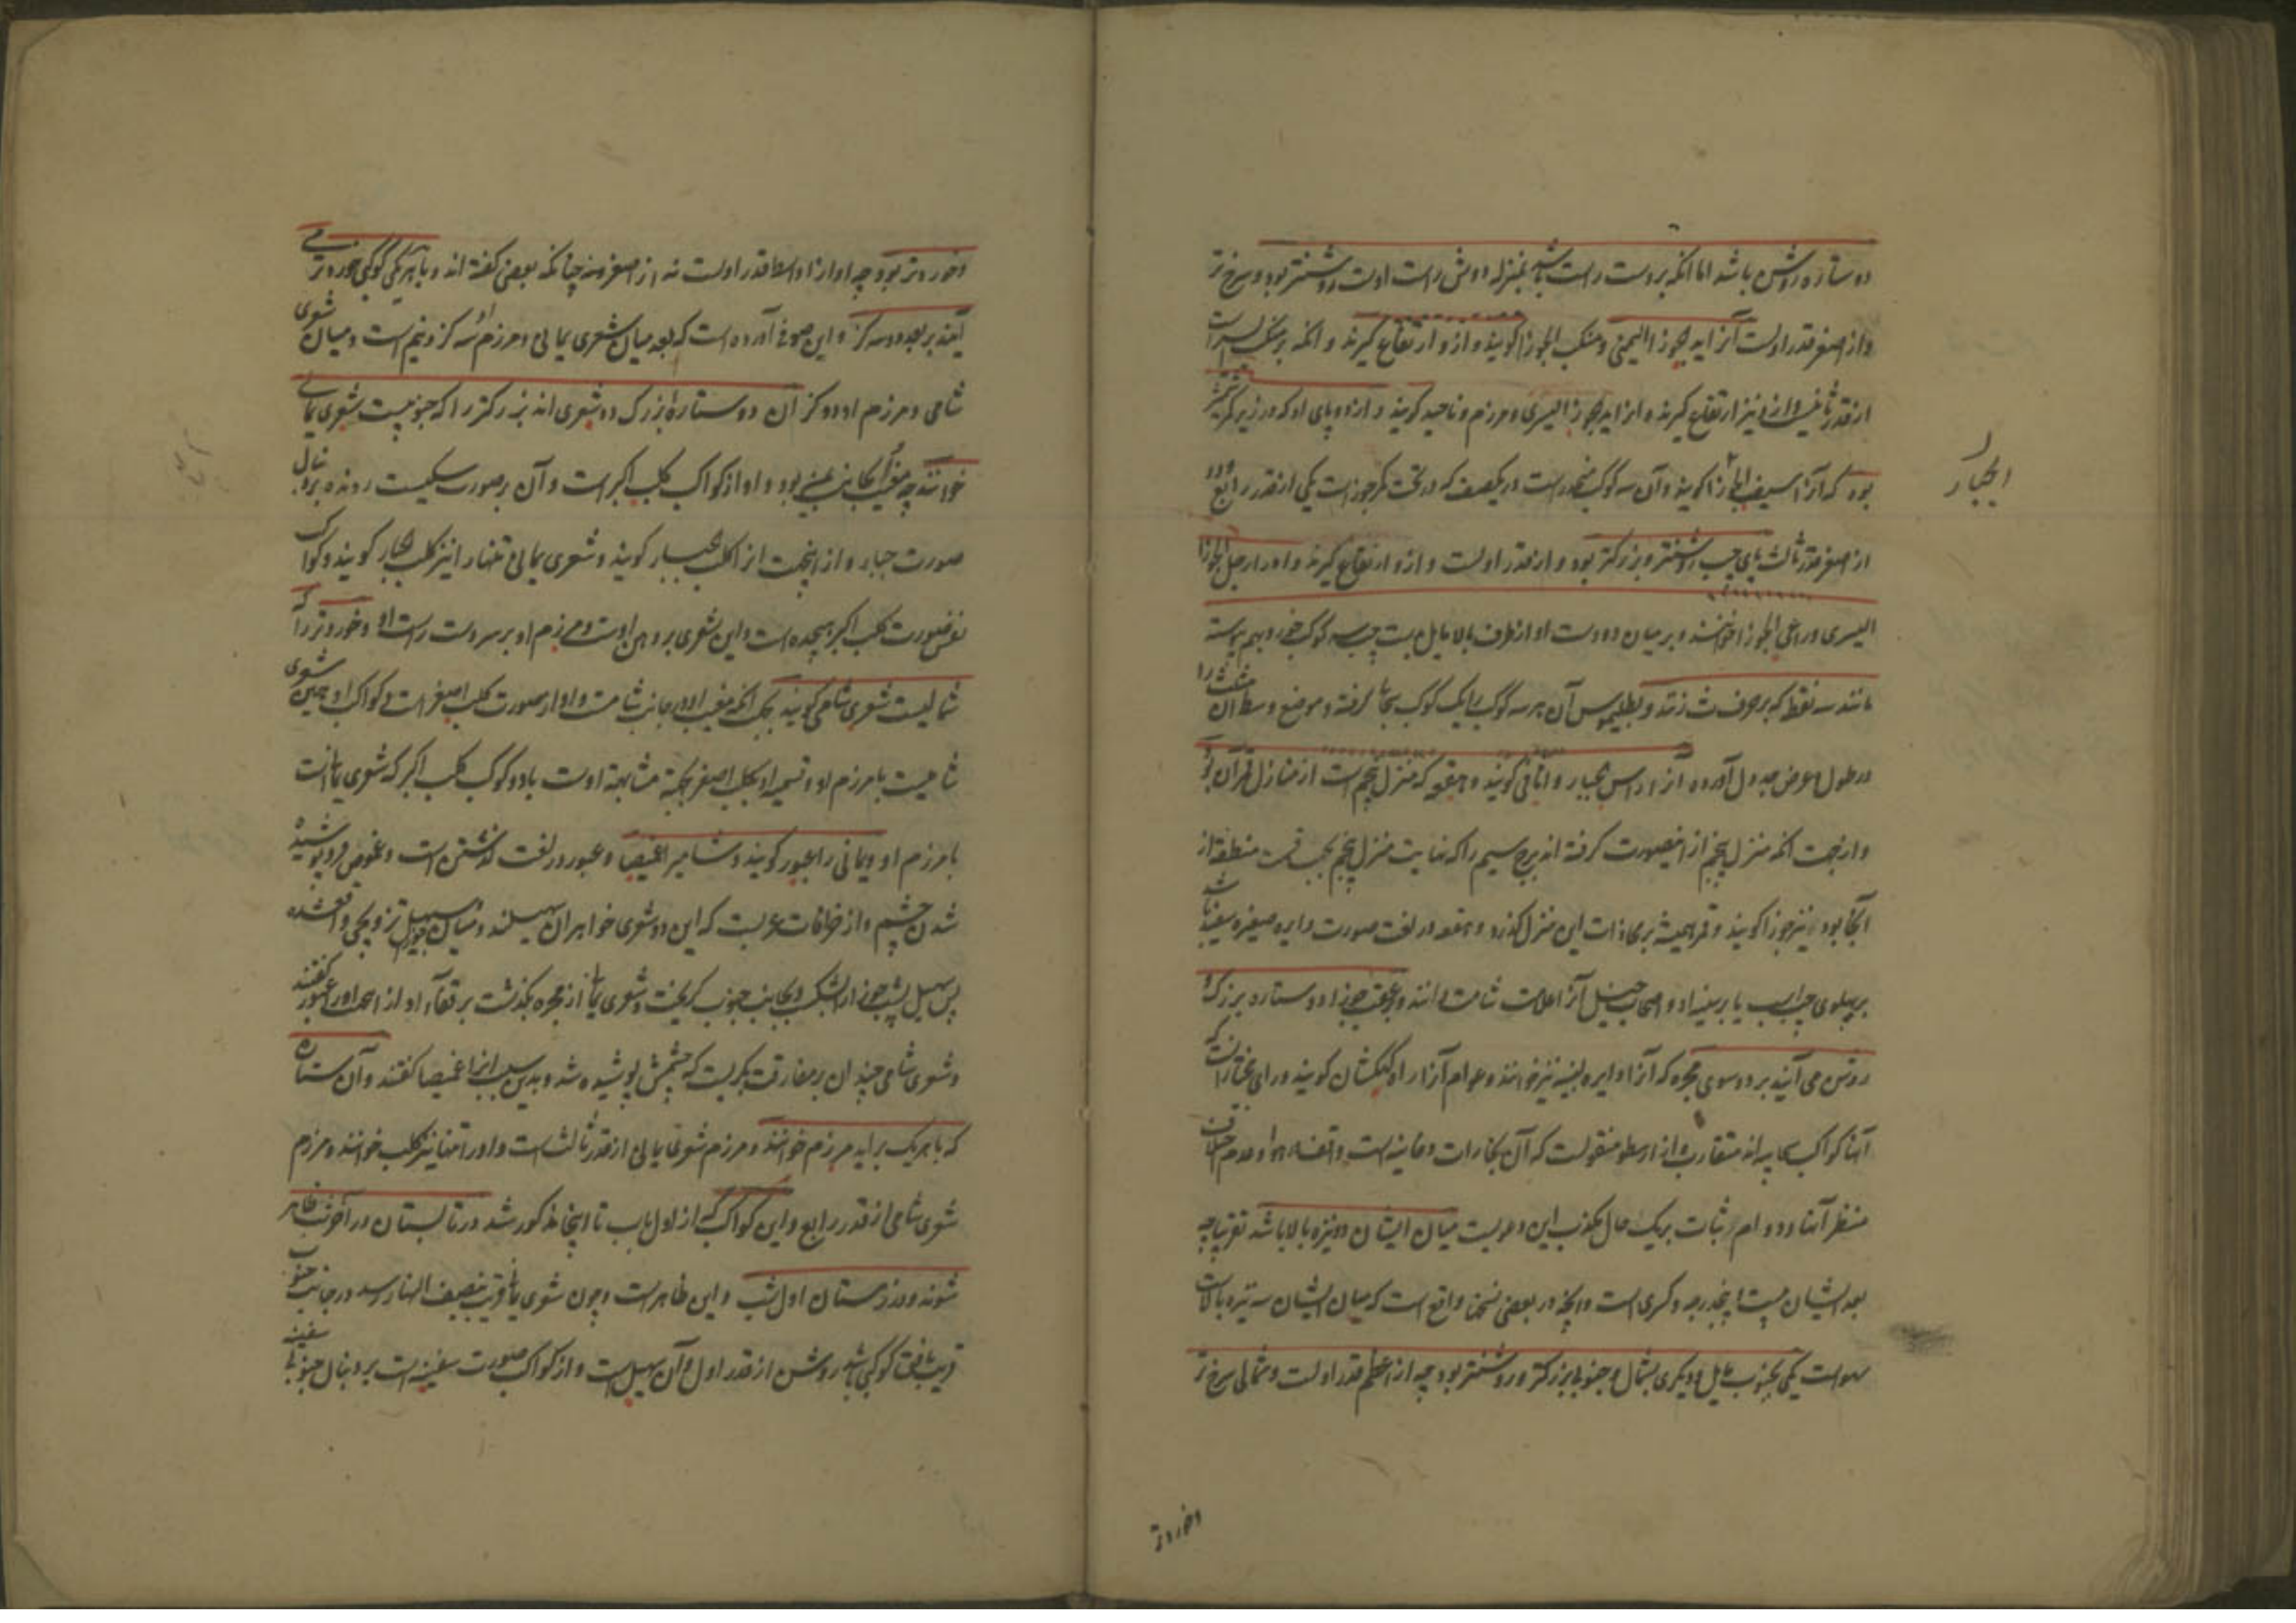 دو ستاره روشن باشد اما آنکه بر دست راست باشد بمنزله دوش راست اوست روشنتر بود و سرخ تر
و از اصغر قدر اولست آنرا ید الجوزا الیمنی و منکب الجوزا گویند و ازو ارتفاع گیرند و آنکه بر منکب
از قدر ثانیست و ازو نیز ارتفاع گیرند و آنرا ید الجوزا الیسری و مرزم و ناجید گویند و از دو پای او که در زیر
بود که آنرا سیف الجوزا گویند و آن سه کوکب منحدرست در یکصف که در تحت کمر جوزاست یکی از قدر رابع و دو
از اصغر قدر ثالث پای چپ روشنتر و بزرگتر بود و از قدر اولست و ازو ارتفاع گیرند و او را رجل الجوزا
الیسری و راعی الجوزا خوانند و بر میان دو دست او از طرف بالا مایل بدست چپ سه کوکب خرد بهم پیوسته
مانند سه نقطه که بر حرف ث زنند و بطلیموس آن هر سه کوکب را یک کوکب سحابی گرفته و موضع وسط آن مثلث را
در طول و عرض جدول آورده آنرا راس الجبار و اثافی گویند و هقعه که منزل پنجم است از منازل قمر آن بود
و از جهت آنکه منزل پنجم ازین صورت گرفته اند برج سیم را که نهایت منزل پنجم بحسب قسمت منطقه از
آنجا بود نیز جوزا گویند و قمر همیشه بمحاذات این منزل گذرد و هقعه در لغت صورت دایره صغیره سفید باشد
بر پهلوی چپ اسب یا بر سینه او و اصحاب خیل آنرا علامت شامت دانند و بر عقب جوزا دو ستاره بزرگ و
روشن می آیند بر دو سوی مجره که آنرا دایره لبنیه نیز خوانند و عوام آنرا راه کهکشان گویند و رای مختار آنست که
آنها کواکب سحابیه اند متقارب و از ارسطو منقولست که آن بخارات دخانیست واقف در هوا و عدم اختلاف
منظر آنها و دوام ثبات بر یک حال مکذب این دعویست میان ایشان دو نیزه بالا باشد تقریبا چه
بعد ایشان بیست و پنجدرجه و کسری است و آنچه در بعضی نسخها واقع است که میان ایشان سه نیزه بالاست
سهوست یکی بجنوب مایل و دیگری بشمال و جنوبی بزرگتر و روشنتر بود چه از اعظم قدر اولست و شمالی سرخ تر
الجبار
و خردتر
و خردتر بود چه او از اواسط قدر اولست نه از اصغر منه چنانکه بعضی گفته اند و با هر یکی کوکبی خردتر می
آیند بر بعد دو سه گز و ابن صوفی آورده است که بعد میان شعری یمانی و مرزم او سه گز و نیم است و میان شعری
شامی و مرزم او دو گز آن دو ستاره بزرگ دو شعری اند بزرگتر را که جنوبیست شعری یمانی
خوانند چه مغیب او بجانب یمین بود و او از کواکب کلب اکبر است و آن بر صورت سگیست رونده بر دنبال
صورت جبار و از اینجهت آنرا کلب الجبار گویند و شعری یمانی تنها را نیز کلب الجبار گویند و کواکب
نفس صورت کلب اکبر هیجده است و این شعری بر دهن اوست و مرزم او بر سر دست راست او و خردتر را که
شمالیست شعری شامی گویند بجهت آنکه مغیب او در جانب شامست و او از صورت کلب اصغر است و کواکب او همین شعری
شامیست با مرزم او و تسمیه او بکلب اصغر بجهة مشابهة اوست با دو کوکب کلب اکبر که شعری یمانیست
با مرزم او و یمانی را عبور گویند و شامی را غمیصا و عبور در لغت گذشتن است و غموص فرو پوشیده
شدن چشم و از خرافات عربست که این دو شعری خواهران سهیلند و میان سهیل و جوزا تزویجی واقع شده
پس سهیل پشت جوزا را بشکست و بجانب جنوب گریخت و شعری یمانی از مجره بگذشت بر قفاء او از اینجهت او را عبور گفتند
و شعری شامی چندان بر مفارقت بگریست که چشمش پوشیده شد و بدین سبب آنرا غمیصا گفتند و آن ستاره
که با هر یک برآید مرزم خوانند و مرزم شعری یمانی از قدر ثالث است و او را تنها نیز کلب خوانند و مرزم
شعری شامی از قدر رابع و این کواکب که از اول باب تا اینجا مذکور شد در تابستان در آخر شب ظاهر
شوند و در زمستان اول شب و این ظاهر است و چون شعری یمانی قریب بنصف النهار رسد در جانب جنوب
قریب بافق کوکبی باشد روشن از قدر اول و آن سهیل است و از کواکب صورت سفینه است بر دنبال جنوبی سفینه